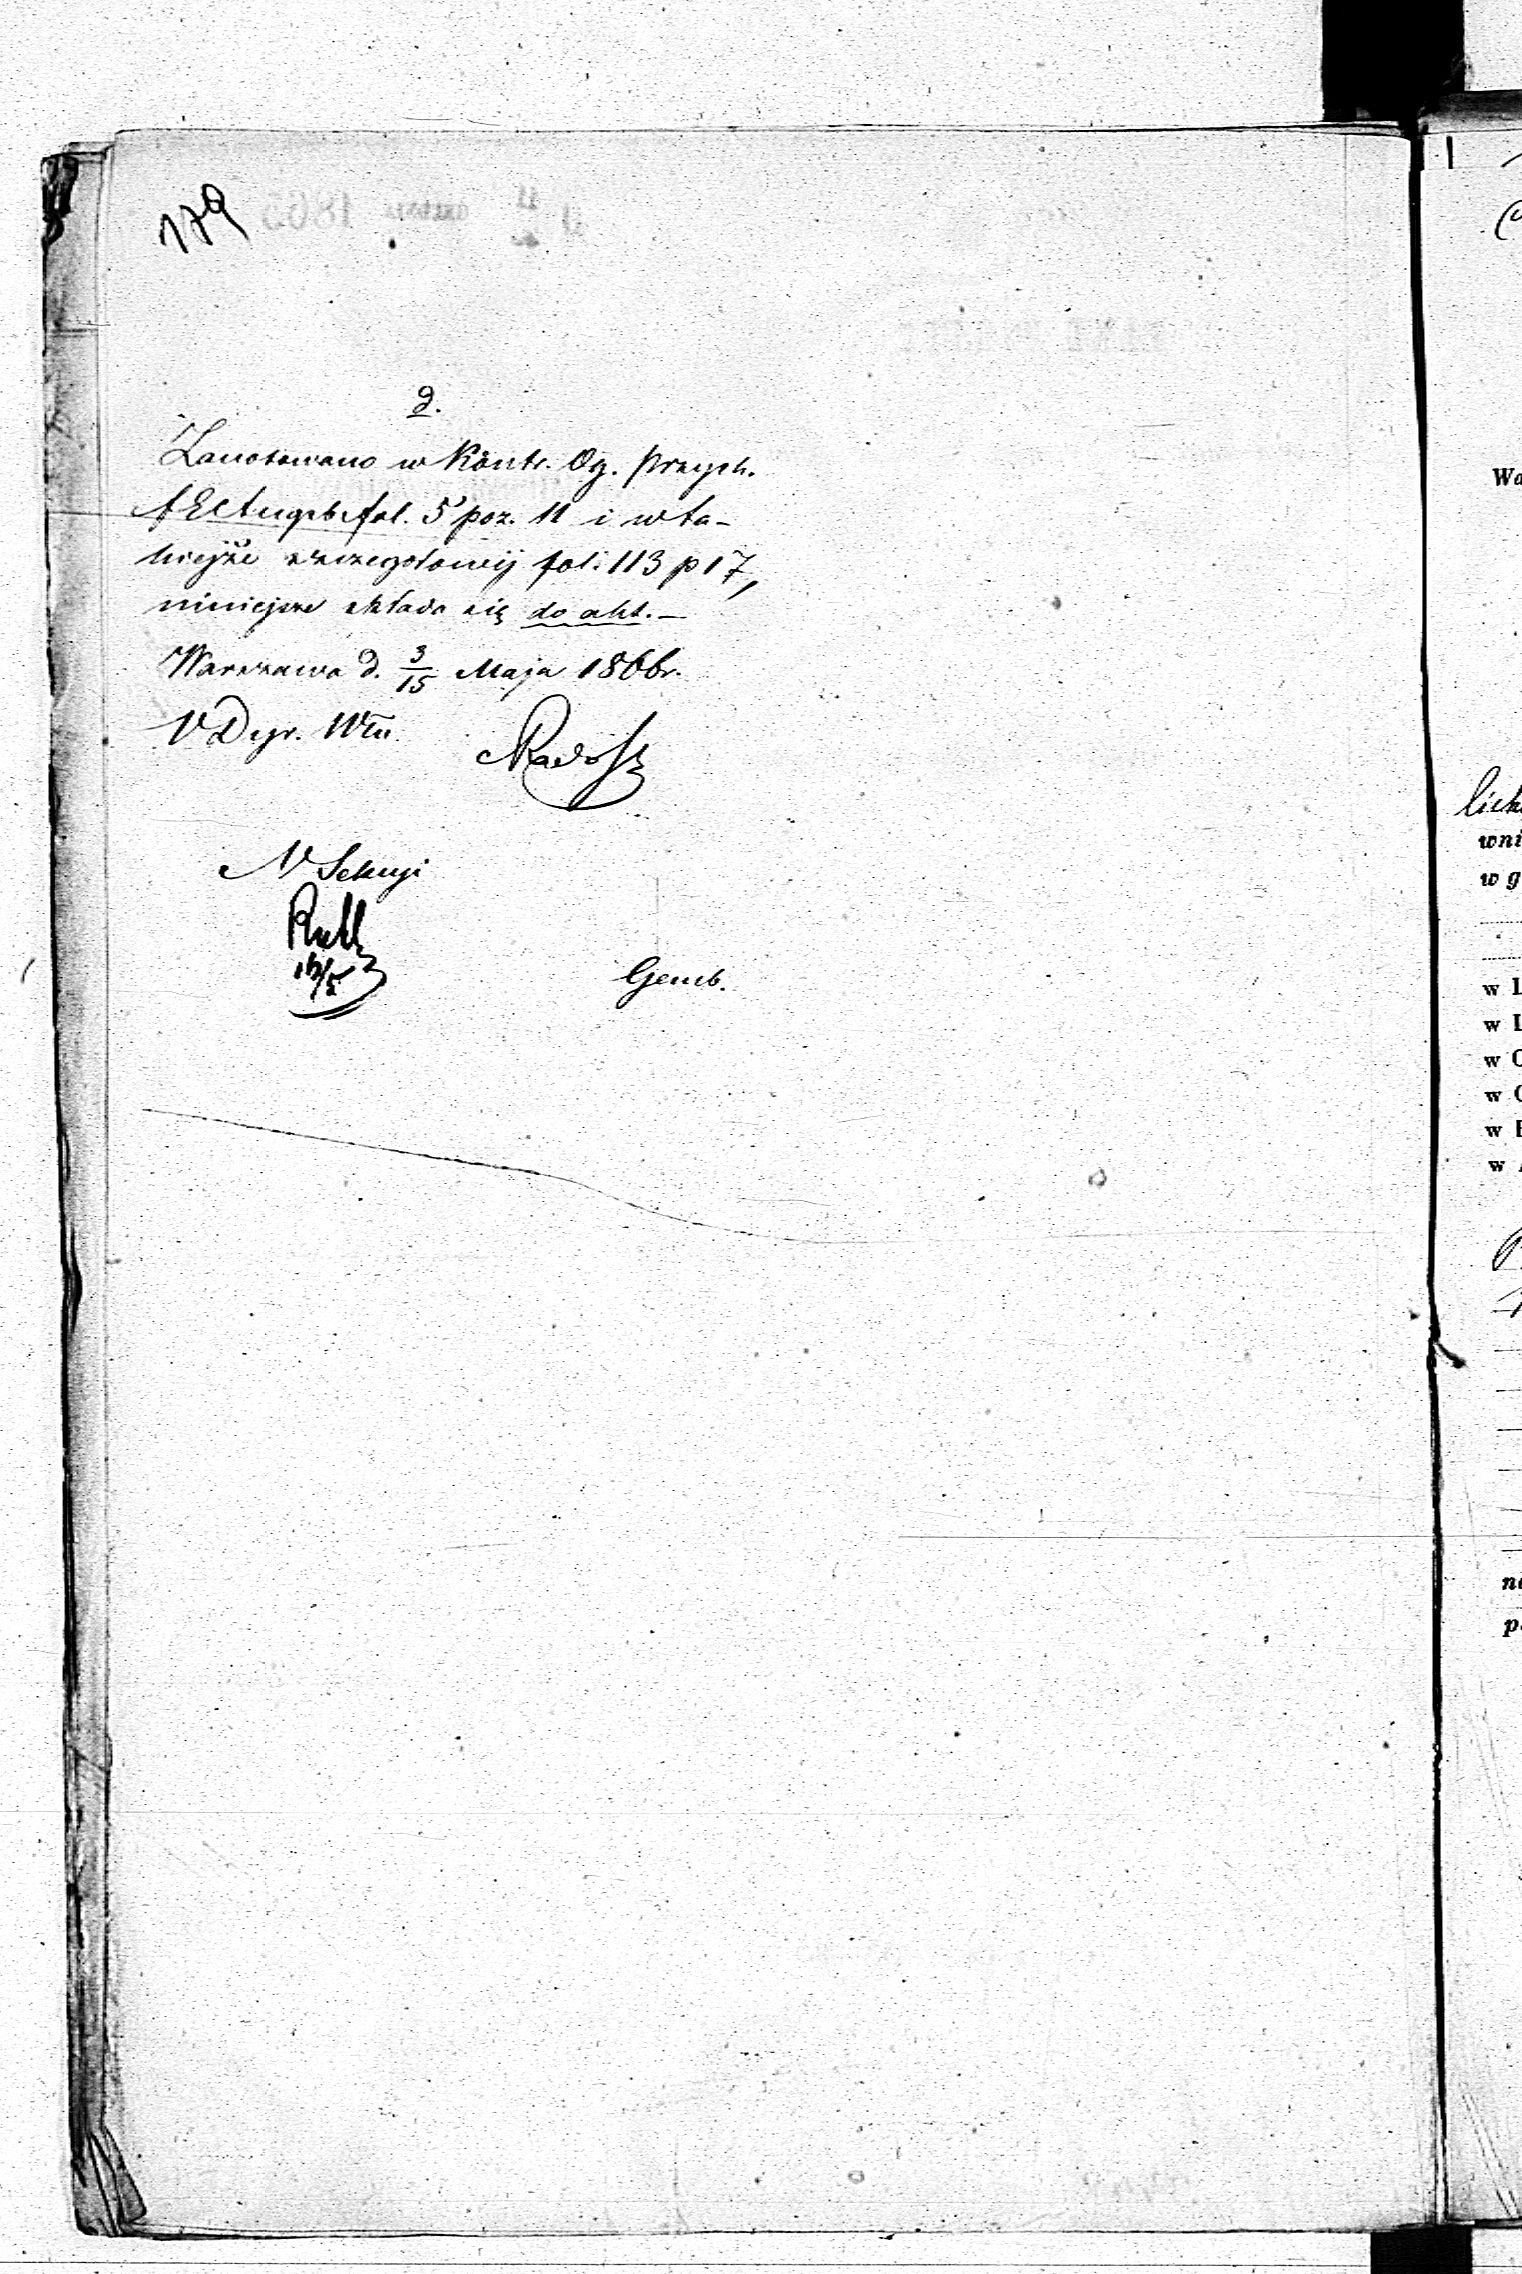 179
d.
Zanotowano w Kontr. Og. Przych.
fol. 5 poz. 11 i w ta-
kiejże szczegołowej fol. 113 p 17,
niniejsze składa się do akt. —
Warszawa d. 3/15 Maja 1866 r.
N Dyr. Włu
N Sekcyi
16/5
Gemb.
Wa
wni
w g
w L
w L
w O
w
w
w